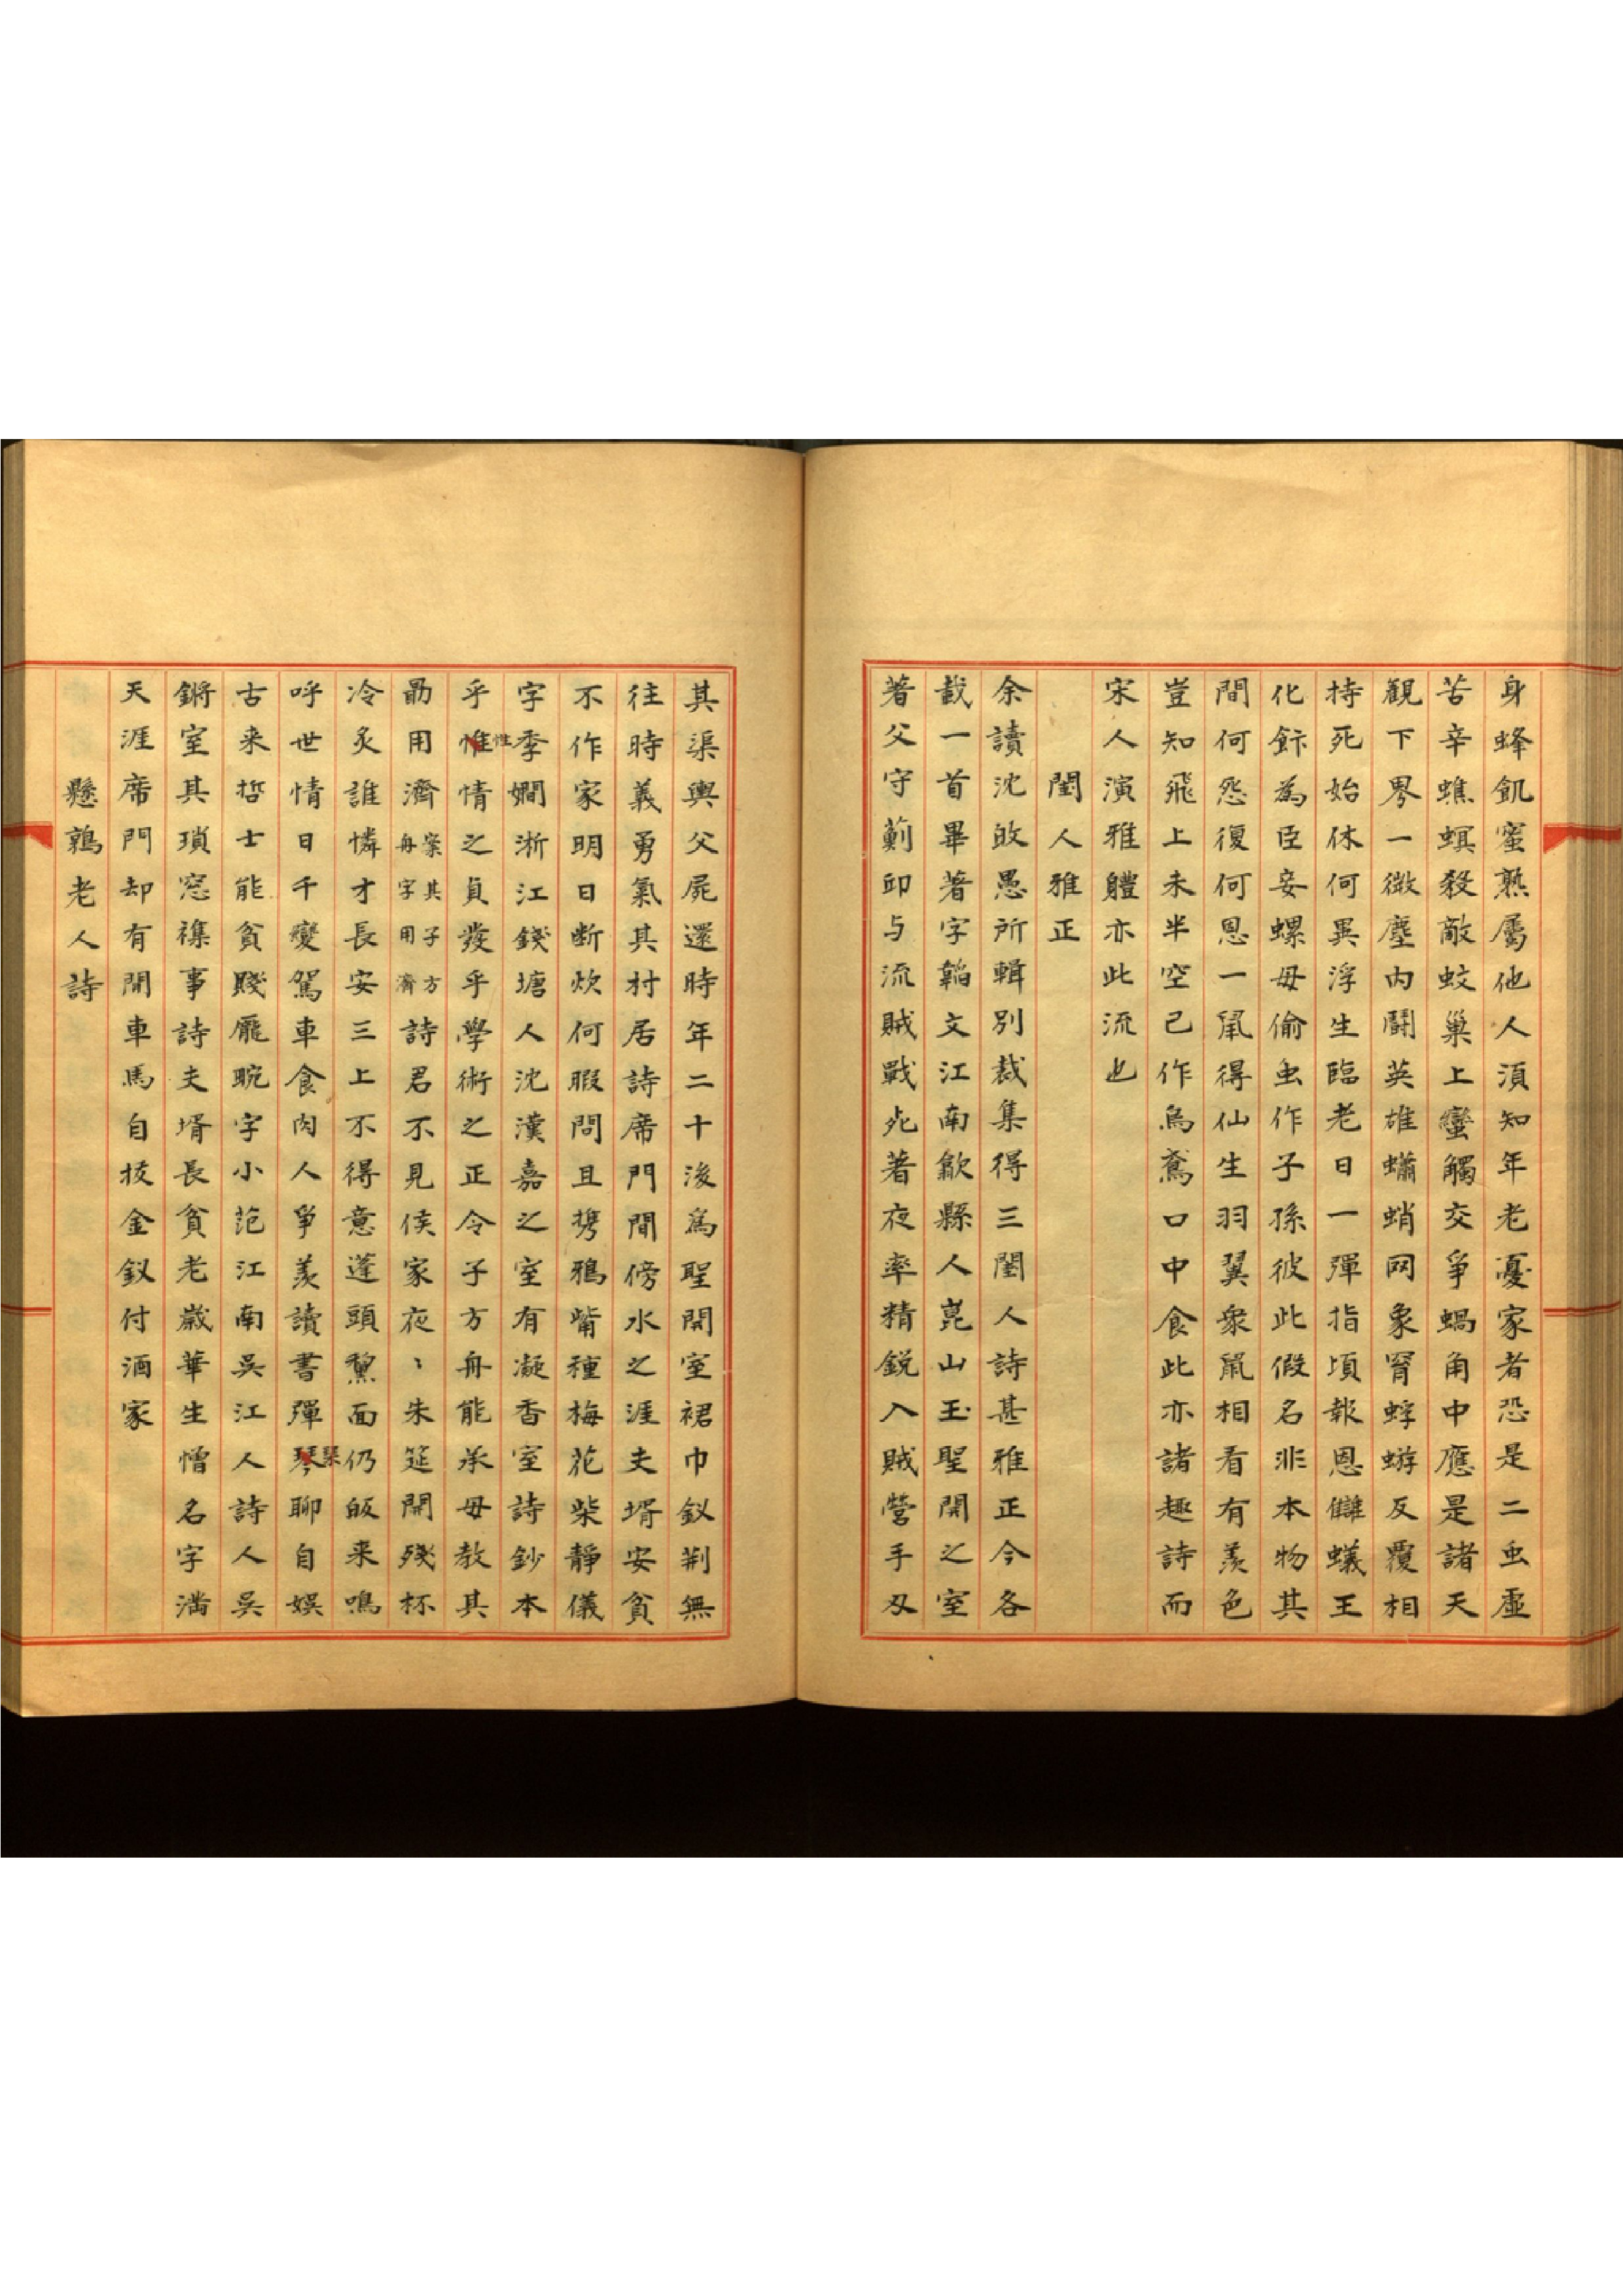 身蜂飢蜜熟屬他人須知年老憂家者恐是二虫虛
苦辛蟭螟殺敵蚊巢上蠻觸交爭蝸角中應是諸天
觀下界一微塵內鬪英雄蠨蛸网象胥蜉蝣反覆相
持死始休何異浮生臨老日一彈指頃報恩讎蟻王
化飰為臣妾螺母偷虫作子孫彼此假名非本物其
間何怨復何恩一鼠得仙生羽翼衆鼠相看有羨色
豈知飛上未半空已作烏鳶口中食此亦諸趣詩而
宋人演雅體亦此流也
閨人雅正
余讀沈敀愚所輯別裁集得三閨人詩甚雅正今各
載一首畢著字韜文江南歙縣人崑山玉聖開之室
著父守薊邱与流賊戰死著夜率精銳入賊營手刃
其渠輿父屍還時年二十後爲聖開室裙巾釵荆無
往時義勇氣其村居詩席門閒傍水之涯夫壻安貧
不作家明日断炊何暇問且携鴉觜種梅花柴靜儀
字季嫺浙江錢塘人沈漢嘉之室有凝香室詩鈔本
乎惟性情之貞發乎學術之正令子方舟能承母教其
勗用濟案其子方舟字用濟詩君不見侯家夜〻朱筵開殘杯
冷炙誰憐才長安三上不得意蓬頭黧面仍皈来鳴
呼世情日千變駕車食肉人爭羨讀書彈琴瑟聊自娛
古来哲士能貧賤龐畹字小范江南吳江人詩人吳
鏘室其瑣窓襍事詩夫壻長貧老歲華生憎名字滿
天涯席門却有閒車馬自拔金釵付酒家
懸鶉老人詩